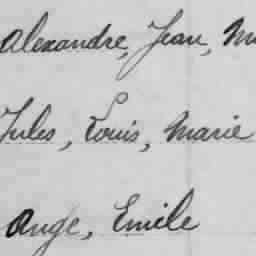 Alexandre, Jean, M
Jules, Louis, Marie
Ange, Emile